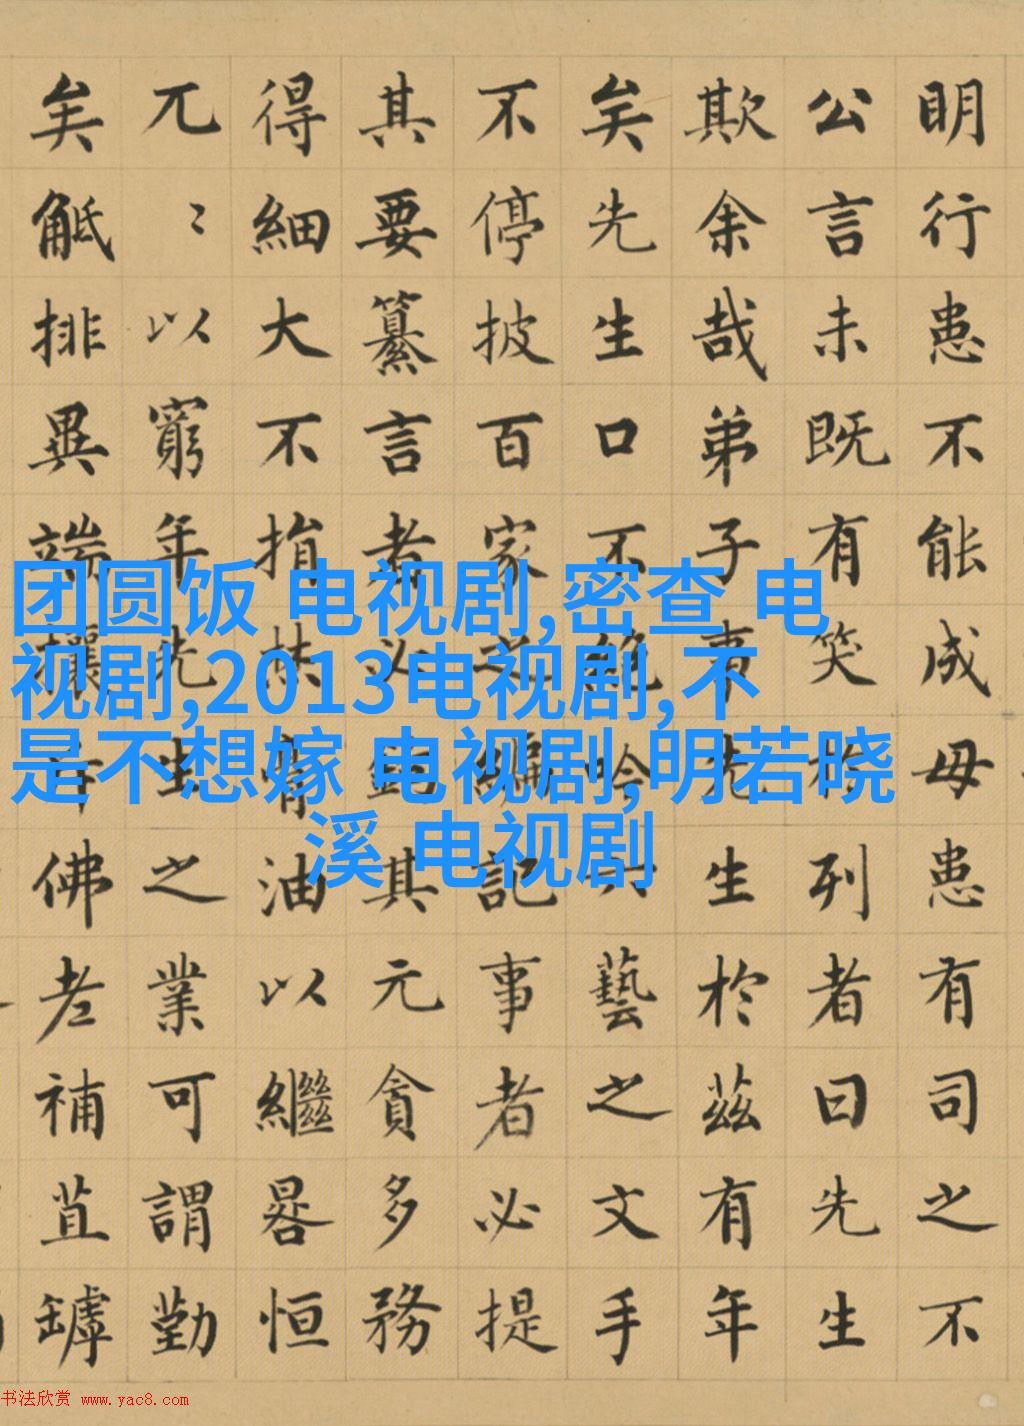 明行患不能成毋患有司之不
公言未既有笑於列者曰先生
欺余哉弟子事先生於茲有年
矣先生口不絕吟六藝之文手
不停披百家之編記事者必提
其要纂言者必鉤其元貪多務
得細大不捐焚膏油以繼晷恒
兀〻以窮年先生之業可謂勤
矣觝排異端攘斥佛老補苴罅
团圆饭 电视剧,密查 电
视剧,2013电视剧,不
是不想嫁 电视剧,明若晓
溪 电视剧
书法欣赏 www.yac8.com